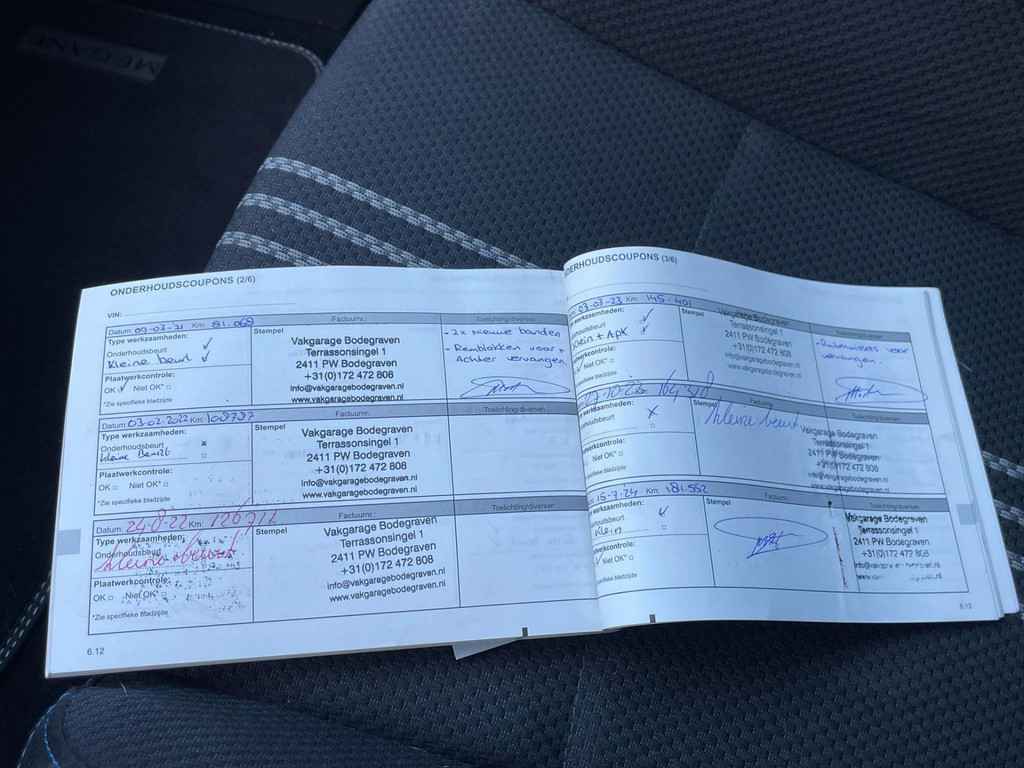 MEGANE
ONDERHOUDSCOUPONS (2/6)
VIN:
Datum: 09-03-21 Km: 81.069
Factuurnr.:
Toelichting/diversen
Type werkzaamheden:
Onderhoudsbeurt ✓
Kleine beurt ✓
Plaatwerkcontrole:
OK ✓ Niet OK* □
*Zie specifieke bladzijde
Stempel
Vakgarage Bodegraven
Terrassonsingel 1
2411 PW Bodegraven
+31(0)172 472 808
info@vakgaragebodegraven.nl
www.vakgaragebodegraven.nl
- 2x nieuwe banden
- Remblokken voor +
Achter vervangen.
Datum: 03-02-2022 Km: 103737
Factuurnr.:
Toelichting/diversen
Type werkzaamheden:
Onderhoudsbeurt x
kleine Beurt □
Plaatwerkcontrole:
OK □ Niet OK* □
*Zie specifieke bladzijde
Stempel
Vakgarage Bodegraven
Terrassonsingel 1
2411 PW Bodegraven
+31(0)172 472 808
info@vakgaragebodegraven.nl
www.vakgaragebodegraven.nl
Datum: 24-8-22 Km:
Factuurnr.:
Toelichting/diversen
Type werkzaamheden:
Onderhoudsbeurt
kleine beurt
Plaatwerkcontrole:
OK □ Niet OK* □
*Zie specifieke bladzijde
Stempel
Vakgarage Bodegraven
Terrassonsingel 1
2411 PW Bodegraven
+31(0)172 472 808
info@vakgaragebodegraven.nl
www.vakgaragebodegraven.nl
6.12
ONDERHOUDSCOUPONS (3/6)
Km: 145-401
Factuurnr.:
Toelichting/diversen
werkzaamheden:
Klein + Apk
werkcontrole:
Niet OK* □
specifieke bladzijde
Stempel
Vakgarage Bodegraven
Terrassonsingel 1
2411 PW Bodegraven
+31(0)172 472 808
info@vakgaragebodegraven.nl
www.vakgaragebodegraven.nl
voor
vervangen.
Factuurnr.:
Toelichting/diversen
werkzaamheden:
x
Niet OK* □
specifieke bladzijde
Stempel
kleine beurt
Vakgarage Bodegraven
Terrassonsingel 1
2411 PW Bodegraven
+31(0)172 472 808
15-7-24 Km: 181.552
Factuurnr.:
Toelichting/diversen
werkzaamheden:
✓
Klein □
werkcontrole:
Niet OK* □
specifieke bladzijde
Stempel
Vakgarage Bodegraven
Terrassonsingel 1
2411 PW Bodegraven
+31(0)172 472 808
6.13